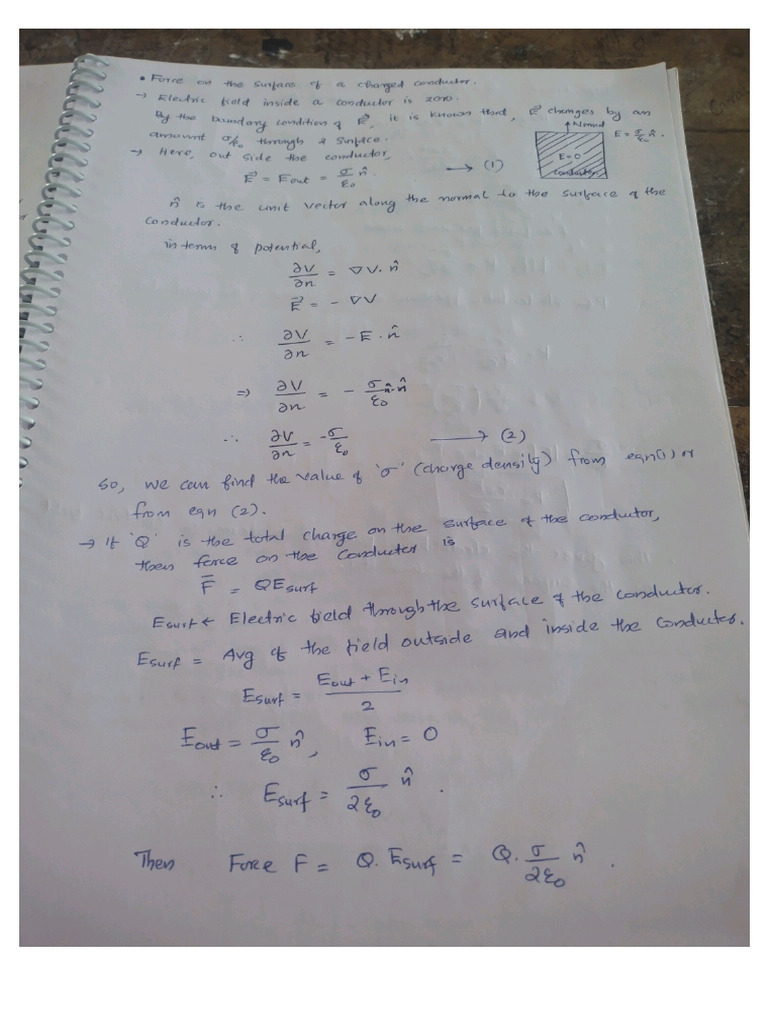 • Force on the surface of a charged conductor.
→ Electric field inside a conductor is zero.
By the boundary condition of E⃗, it is known that, E⃗ changes by an
amount σ/ε₀ through a surface.
↑ Normal
E = σ/ε₀ n̂.
E=0
conductor
→ Here, out side the conductor,
E⃗ = Eout = σ/ε₀ n̂. ⟶ (1)
n̂ is the unit vector along the normal to the surface of the
conductor.
in terms of potential,
∂V/∂n = ∇V. n̂
E⃗ = - ∇V
∴ ∂V/∂n = - E . n̂
⇒ ∂V/∂n = - σ/ε₀ n̂.n̂
∴ ∂V/∂n = -σ/ε₀ ⟶ (2)
So, we can find the value of 'σ' (charge density) from eqn(1) or
from eqn (2).
→ If 'Q' is the total charge on the surface of the conductor,
then force on the Conductor is
F̅ = QEsurf
Esurf ← Electric field through the surface of the conductor.
Esurf = Avg of the field outside and inside the conductor.
Esurf = (Eout + Ein)/2
Eout = σ/ε₀ n̂, Ein = 0
∴ Esurf = σ/2ε₀ n̂ .
Then Force F = Q. Esurf = Q. σ/2ε₀ n̂ .